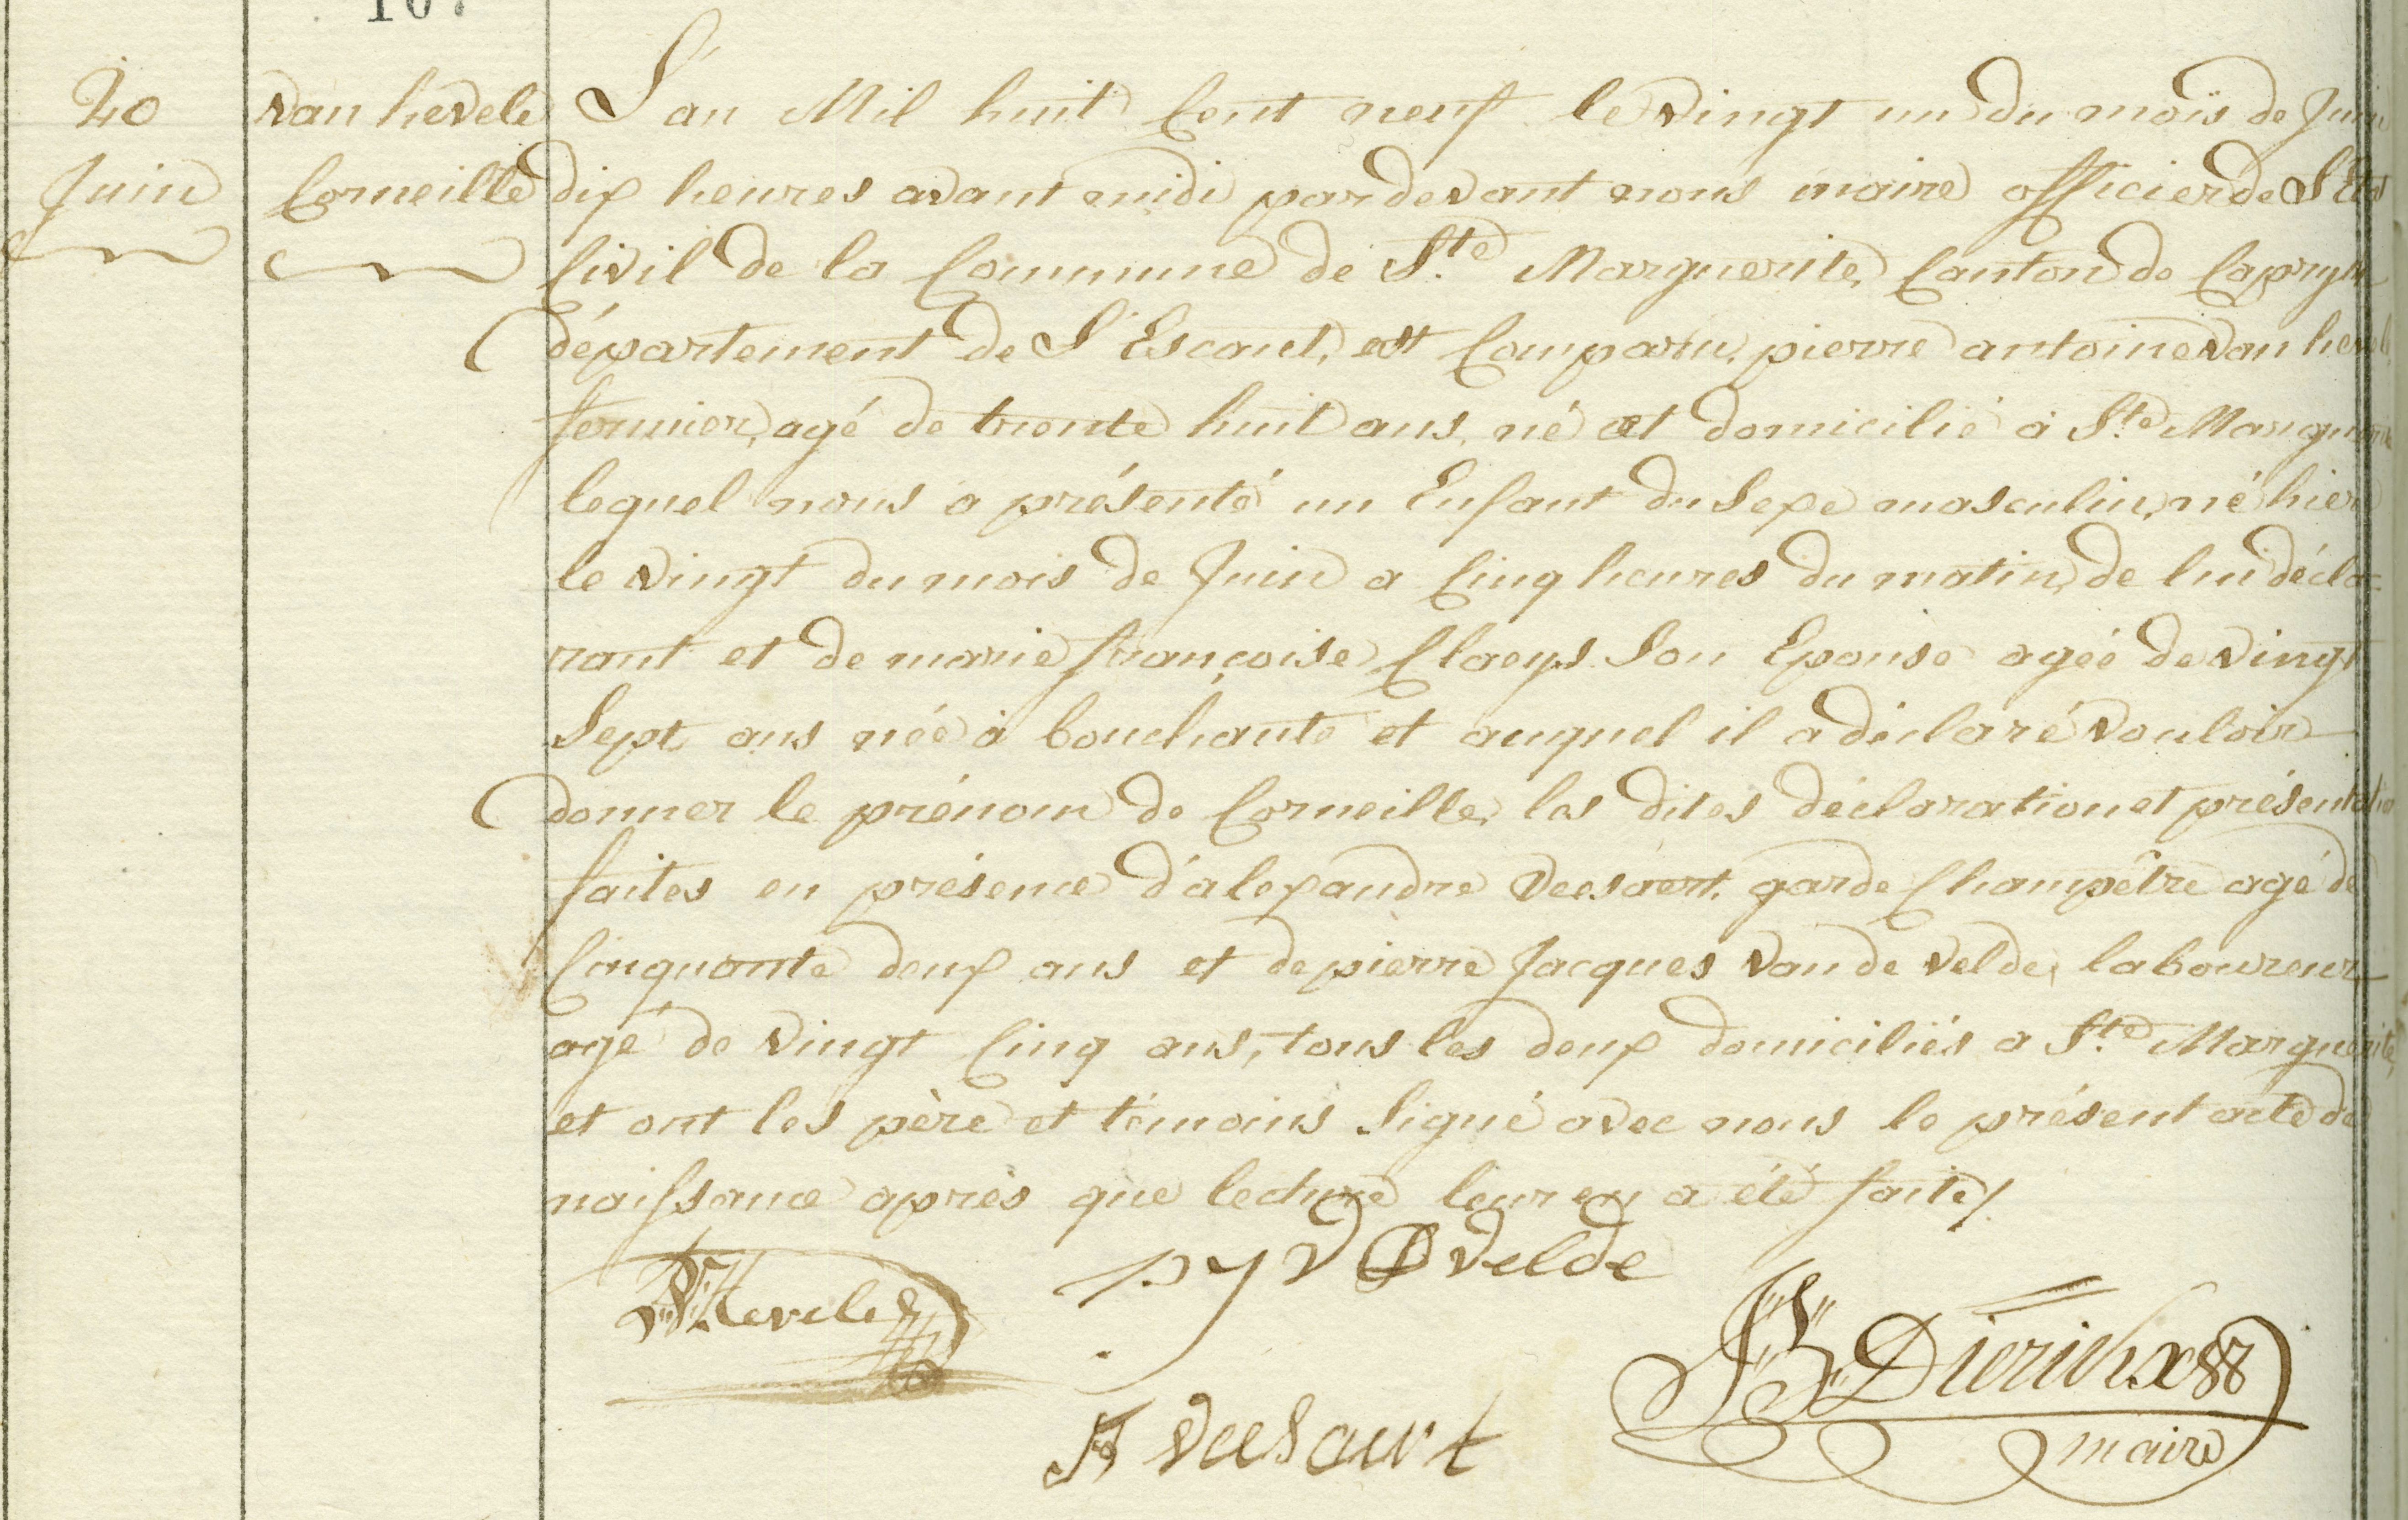 20
Juin
van hevele
Corneille
L'an Mil huit Cent neuf le vingt un du mois de Juin
dix heures avant midi pardevant nous maire officier de L'Etat
Civil de la Commune de S.te Marguerite, Canton de Capryke
département de L'Escaut, est Comparu, pierre antoine van hevele
fermier, agé de trente huit ans, né et domicilié à S.te Marguerite
lequel nous a présenté un Enfant du Sexe masculin, né hier
le vingt du mois de Juin a Cinq heures du matin, de lui décla=
rant et de marie françoise Claeys Son Epouse agée de vingt
Sept ans née à bouchaute et auquel il a déclaré vouloir
donner le prénom de Corneille, les dites déclaration et présentation
faites en présence d'alexandre veesaert, garde Champêtre agé de
Cinquante deux ans et de pierre Jacques van de velde, laboureur
agé de vingt Cinq ans, tous les deux domiciliés a S.te Marguerite,
et ont les père et témoins Signé avec nous le présent acte de
naissance après que lecture leur en a été faite/.
PVHevele
p j v D velde
A veesaert
Dierickx
maire